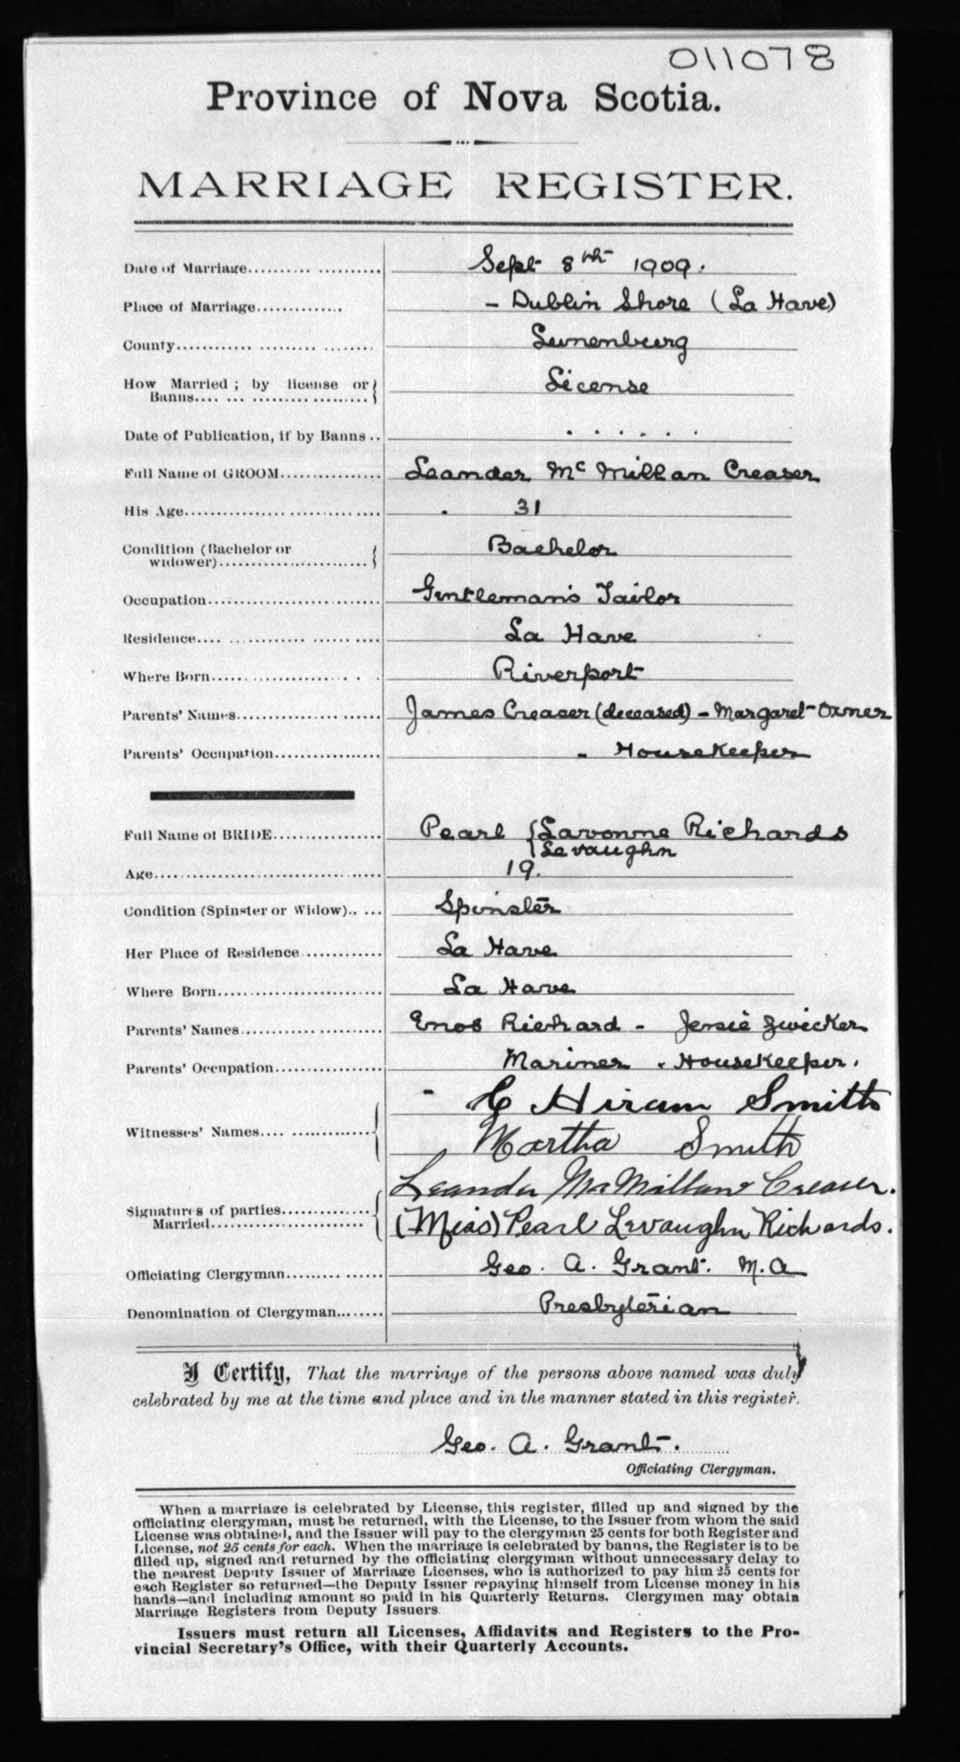 011078
Province of Nova Scotia.
MARRIAGE REGISTER.
Date of Marriage Sept 8th 1909.
Place of Marriage - Dublin Shore (La Have)
County Lunenburg
How Married; by license or
Banns License
Date of Publication, if by Banns . . . . . .
Full Name of GROOM Leander Mc Millan Creaser
His Age 31
Condition (Bachelor or
widower) Bachelor
Occupation Gentleman's Tailor
Residence La Have
Where Born Riverport
Parents' Names James Creaser (deceased) - Margaret Oxner
Parents' Occupation - Housekeeper
Full Name of BRIDE Pearl {Lavonne Richards
{Levaughn
Age 19.
Condition (Spinster or Widow) Spinster
Her Place of Residence La Have
Where Born La Have
Parents' Names Enos Richard - Jessie Zwicker
Parents' Occupation Mariner . Housekeeper.
Witnesses' Names - C Hiram Smith
Martha Smith
Signatures of parties Leander McMillan Creaser.
Married (Miss) Pearl Levaughn Richards.
Officiating Clergyman Geo. A. Grant. M.A
Denomination of Clergyman Presbyterian
I Certify, That the marriage of the persons above named was duly
celebrated by me at the time and place and in the manner stated in this register.
Geo. A. Grant.
Officiating Clergyman.
When a marriage is celebrated by License, this register, filled up and signed by the
officiating clergyman, must be returned, with the License, to the Issuer from whom the said
License was obtained, and the Issuer will pay to the clergyman 25 cents for both Register and
License, not 25 cents for each. When the marriage is celebrated by banns, the Register is to be
filled up, signed and returned by the officiating clergyman without unnecessary delay to
the nearest Deputy Issuer of Marriage Licenses, who is authorized to pay him 25 cents for
each Register so returned—the Deputy Issuer repaying himself from License money in his
hands—and including amount so paid in his Quarterly Returns. Clergymen may obtain
Marriage Registers from Deputy Issuers
Issuers must return all Licenses, Affidavits and Registers to the Pro-
vincial Secretary's Office, with their Quarterly Accounts.